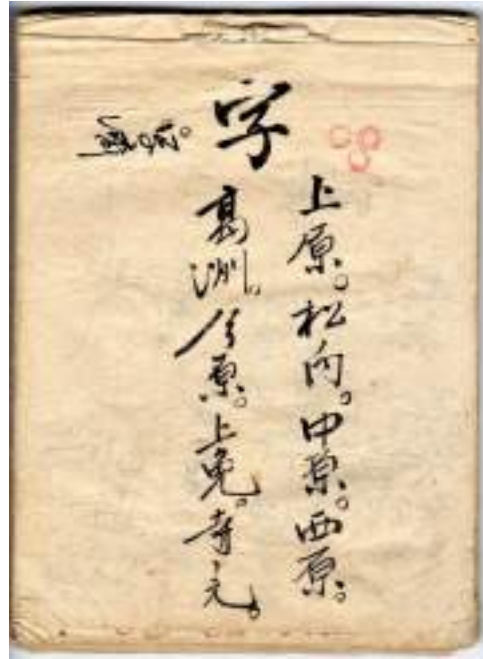 字
上原。松内。中原。西原。
葛洲。今原。上免。寺元。